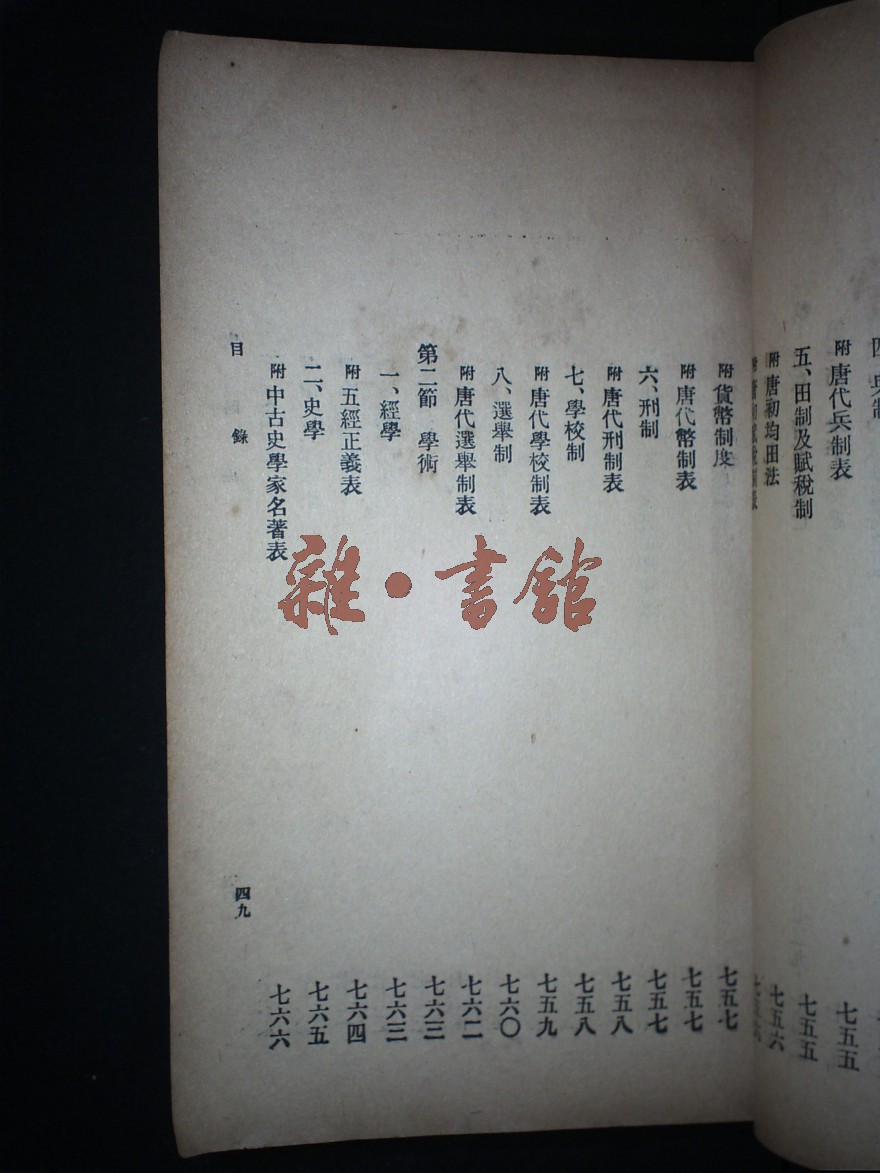 附 唐代兵制表 七五五
五、田制及賦稅制 七五五
附 唐初均田法 七五六
附 貨幣制度 七五七
附 唐代幣制表 七五七
六、刑制 七五七
附 唐代刑制表 七五八
七、學校制 七五八
附 唐代學校制表 七五九
八、選舉制 七六〇
附 唐代選舉制表 七六二
第二節 學術 七六三
一、經學 七六三
附 五經正義表 七六四
二、史學 七六五
附 中古史學家名著表 七六六
目錄 四九
雜·書館